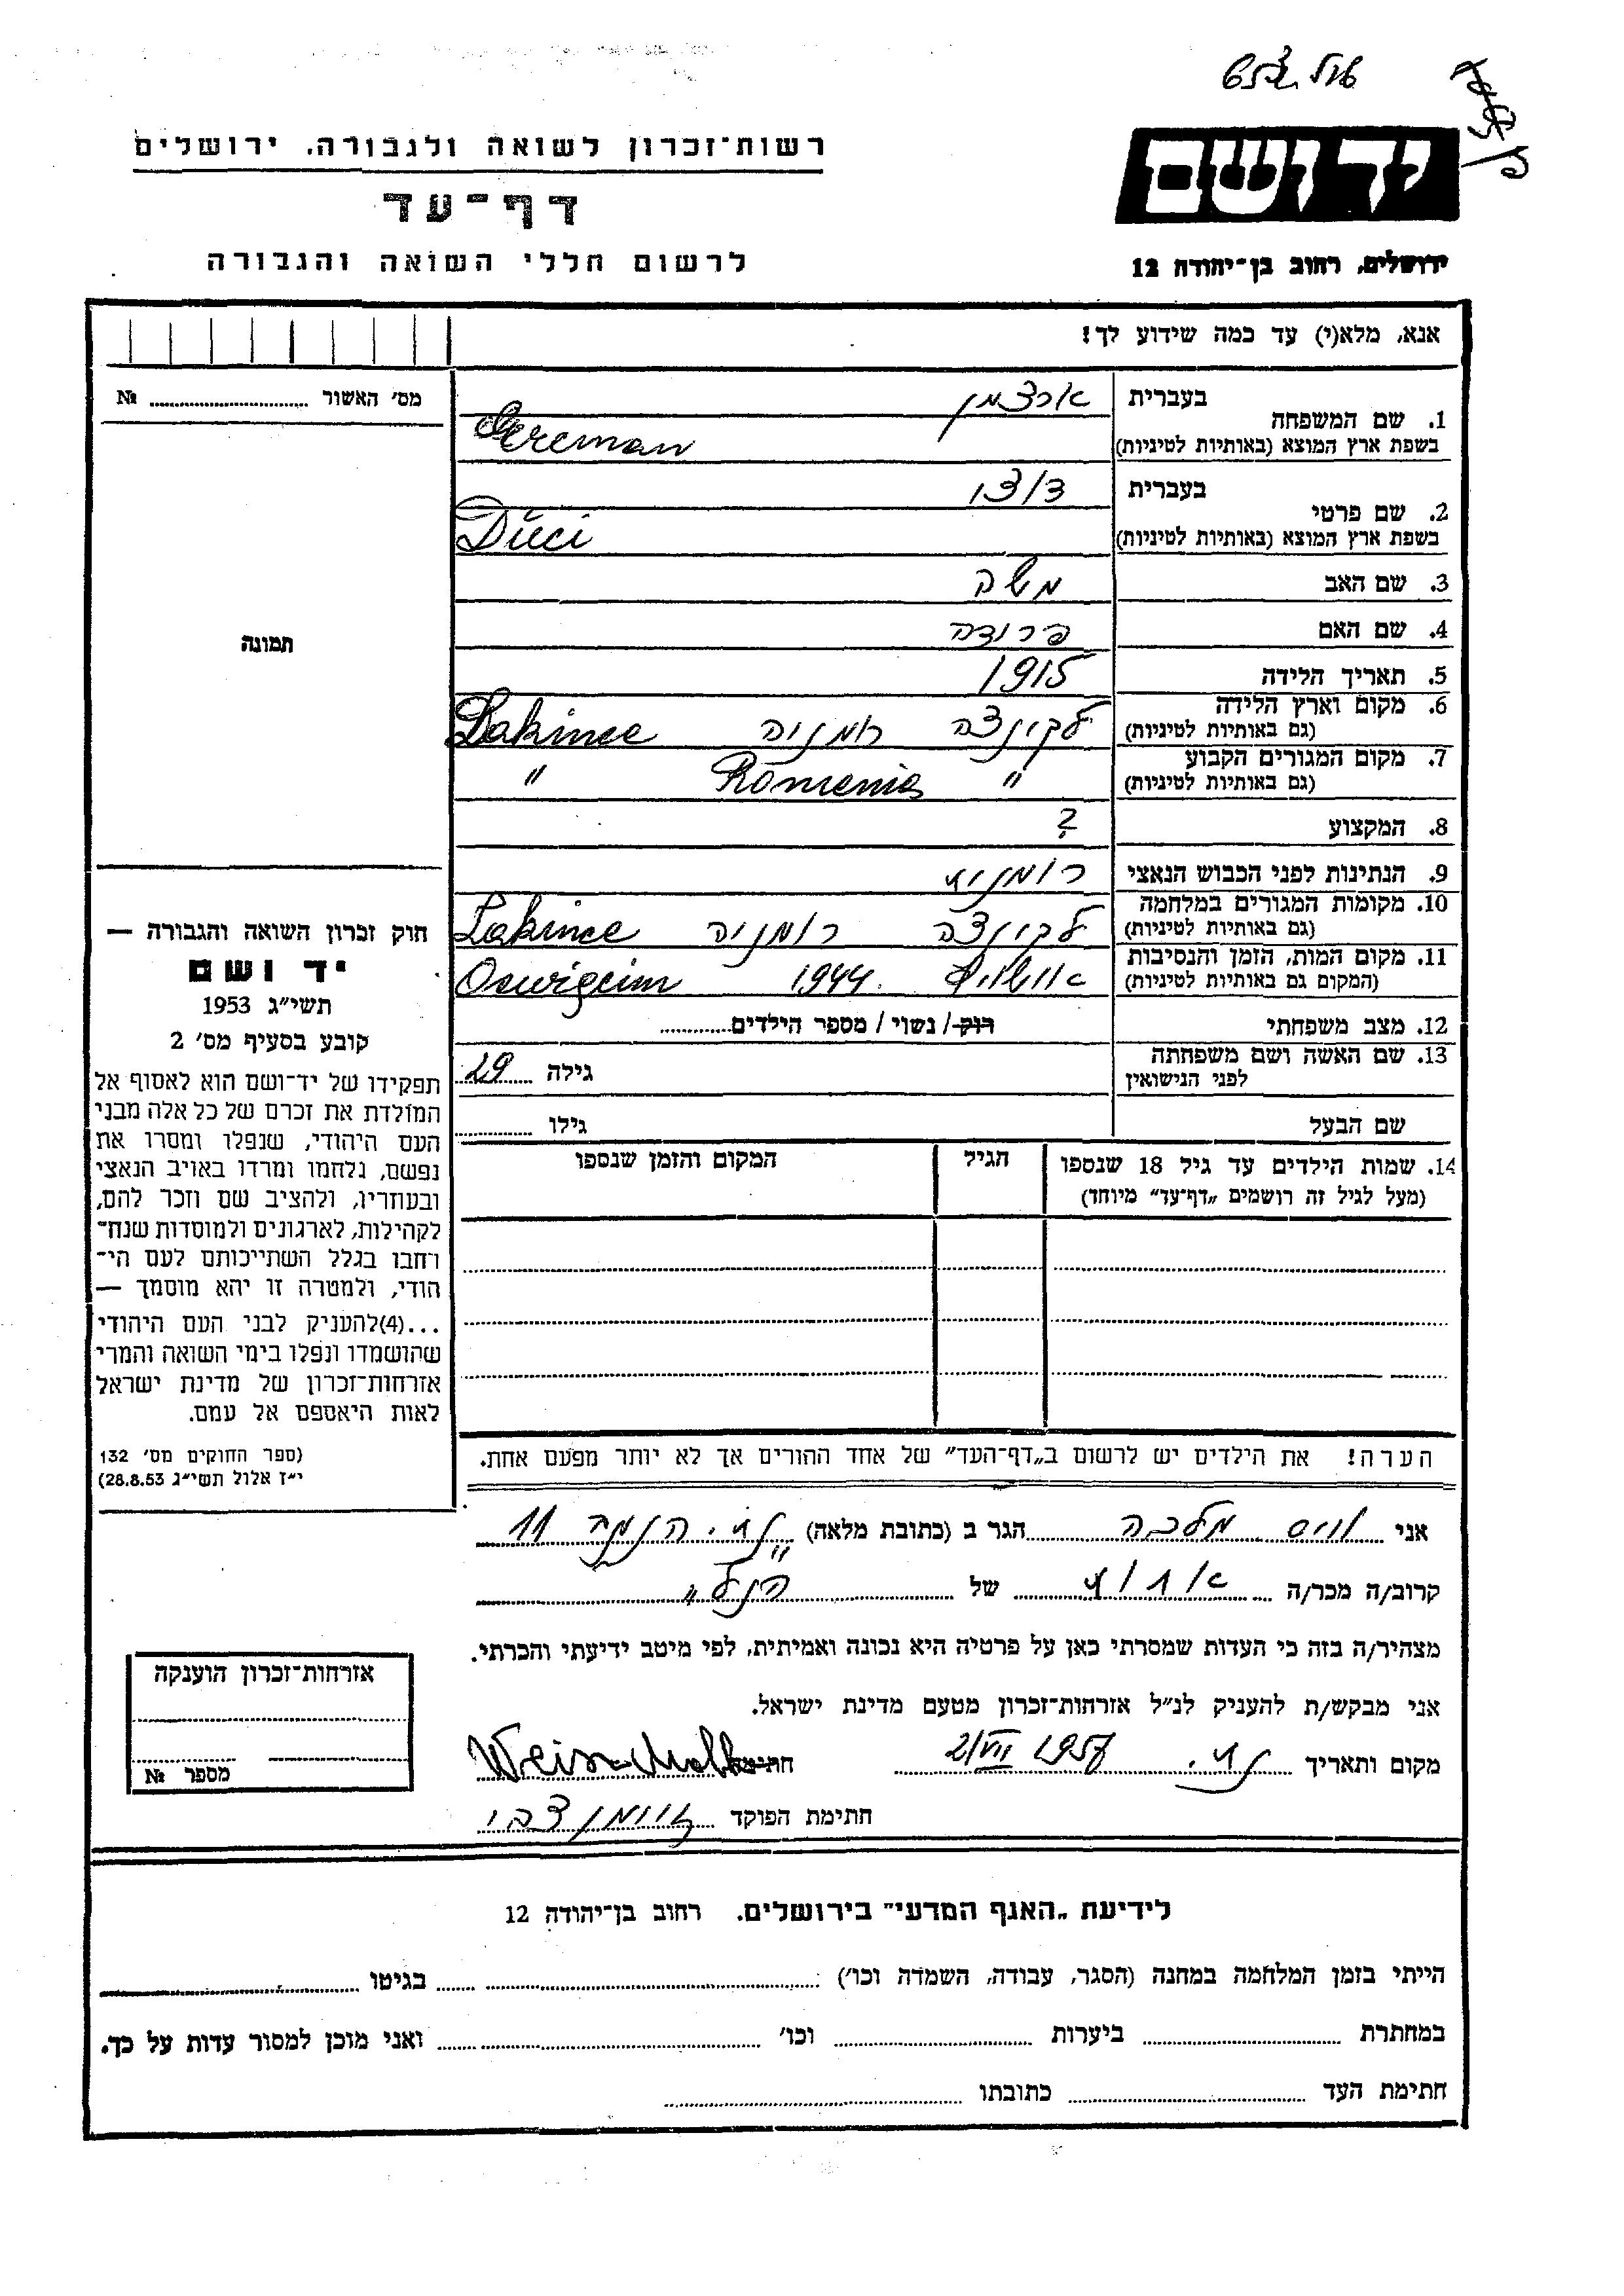 רשות־זכרון לשואה ולגבורה. ירושלים
דף־עד
לרשום חללי השואה והגבורה
יד ושם
ירושלים, רחוב בן־יהודה 12
אנא, מלא(י) עד כמה שידוע לך!
מס׳ האשור № 
תמונה
חוק זכרון השואה והגבורה —
יד ושם
תשי״ג 1953
קובע בסעיף מס׳ 2
תפקידו של יד־ושם הוא לאסוף אל
המולדת את זכרם של כל אלה מבני
העם היהודי, שנפלו ומסרו את
נפשם, נלחמו ומרדו באויב הנאצי
ובעוזריו, ולהציב שם וזכר להם,
לקהילות, לארגונים ולמוסדות שנח־
רחבו בגלל השתייכותם לעם הי־
הודי, ולמטרה זו יהא מוסמך —
...(4) להעניק לבני העם היהודי
שהושמדו ונפלו בימי השואה והמרי
אזרחות־זכרון של מדינת ישראל
לאות היאספם אל עמם.
(ספר החוקים מס׳ 132
י״ז אלול תשי״ג 28.8.53)
בעברית
1. שם המשפחה
בשפת ארץ המוצא (באותיות לטיניות) Gereman
בעברית
2. שם פרטי
בשפת ארץ המוצא (באותיות לטיניות) Düci
3. שם האב משה
4. שם האם
5. תאריך הלידה 1915
6. מקום וארץ הלידה לקינצה רומניה Lakince
(גם באותיות לטיניות)
7. מקום המגורים הקבוע " Romenia "
(גם באותיות לטיניות)
8. המקצוע ?
9. הנתינות לפני הכבוש הנאצי רומנית
10. מקומות המגורים במלחמה לקינצה רומניה Lakince
(גם באותיות לטיניות)
11. מקום המות, הזמן והנסיבות אושויץ 1944. Oswigcim
(המקום גם באותיות לטיניות)
12. מצב משפחתי רוק/ נשוי / מספר הילדים
13. שם האשה ושם משפחתה גילה 29
לפני הנישואין
שם הבעל גילו
14. שמות הילדים עד גיל 18 שנספו הגיל המקום והזמן שנספו
(מעל לגיל זה רושמים „דף־עד״ מיוחד)
הערה! את הילדים יש לרשום ב„דף־העד״ של אחד ההורים אך לא יותר מפעם אחת.
אני וויס מלכה הגר ב (כתובת מלאה) 11
קרוב/ה מכר/ה אחות של הנ"ל
מצהיר/ה בזה כי העדות שמסרתי כאן על פרטיה היא נכונה ואמיתית, לפי מיטב ידיעתי והכרתי.
אני מבקש/ת להעניק לנ״ל אזרחות־זכרון מטעם מדינת ישראל.
מקום ותאריך 2/VII 1957 חתימה Weisz Malka
חתימת הפוקד צבי
אזרחות־זכרון הוענקה
מספר №
לידיעת „האגף המדעי״ בירושלים. רחוב בן־יהודה 12
הייתי בזמן המלחמה במחנה (הסגר, עבודה, השמדה וכו׳) בגיטו
במחתרת ביערות וכו׳ ואני מוכן למסור עדות על כך.
חתימת העד כתובתו